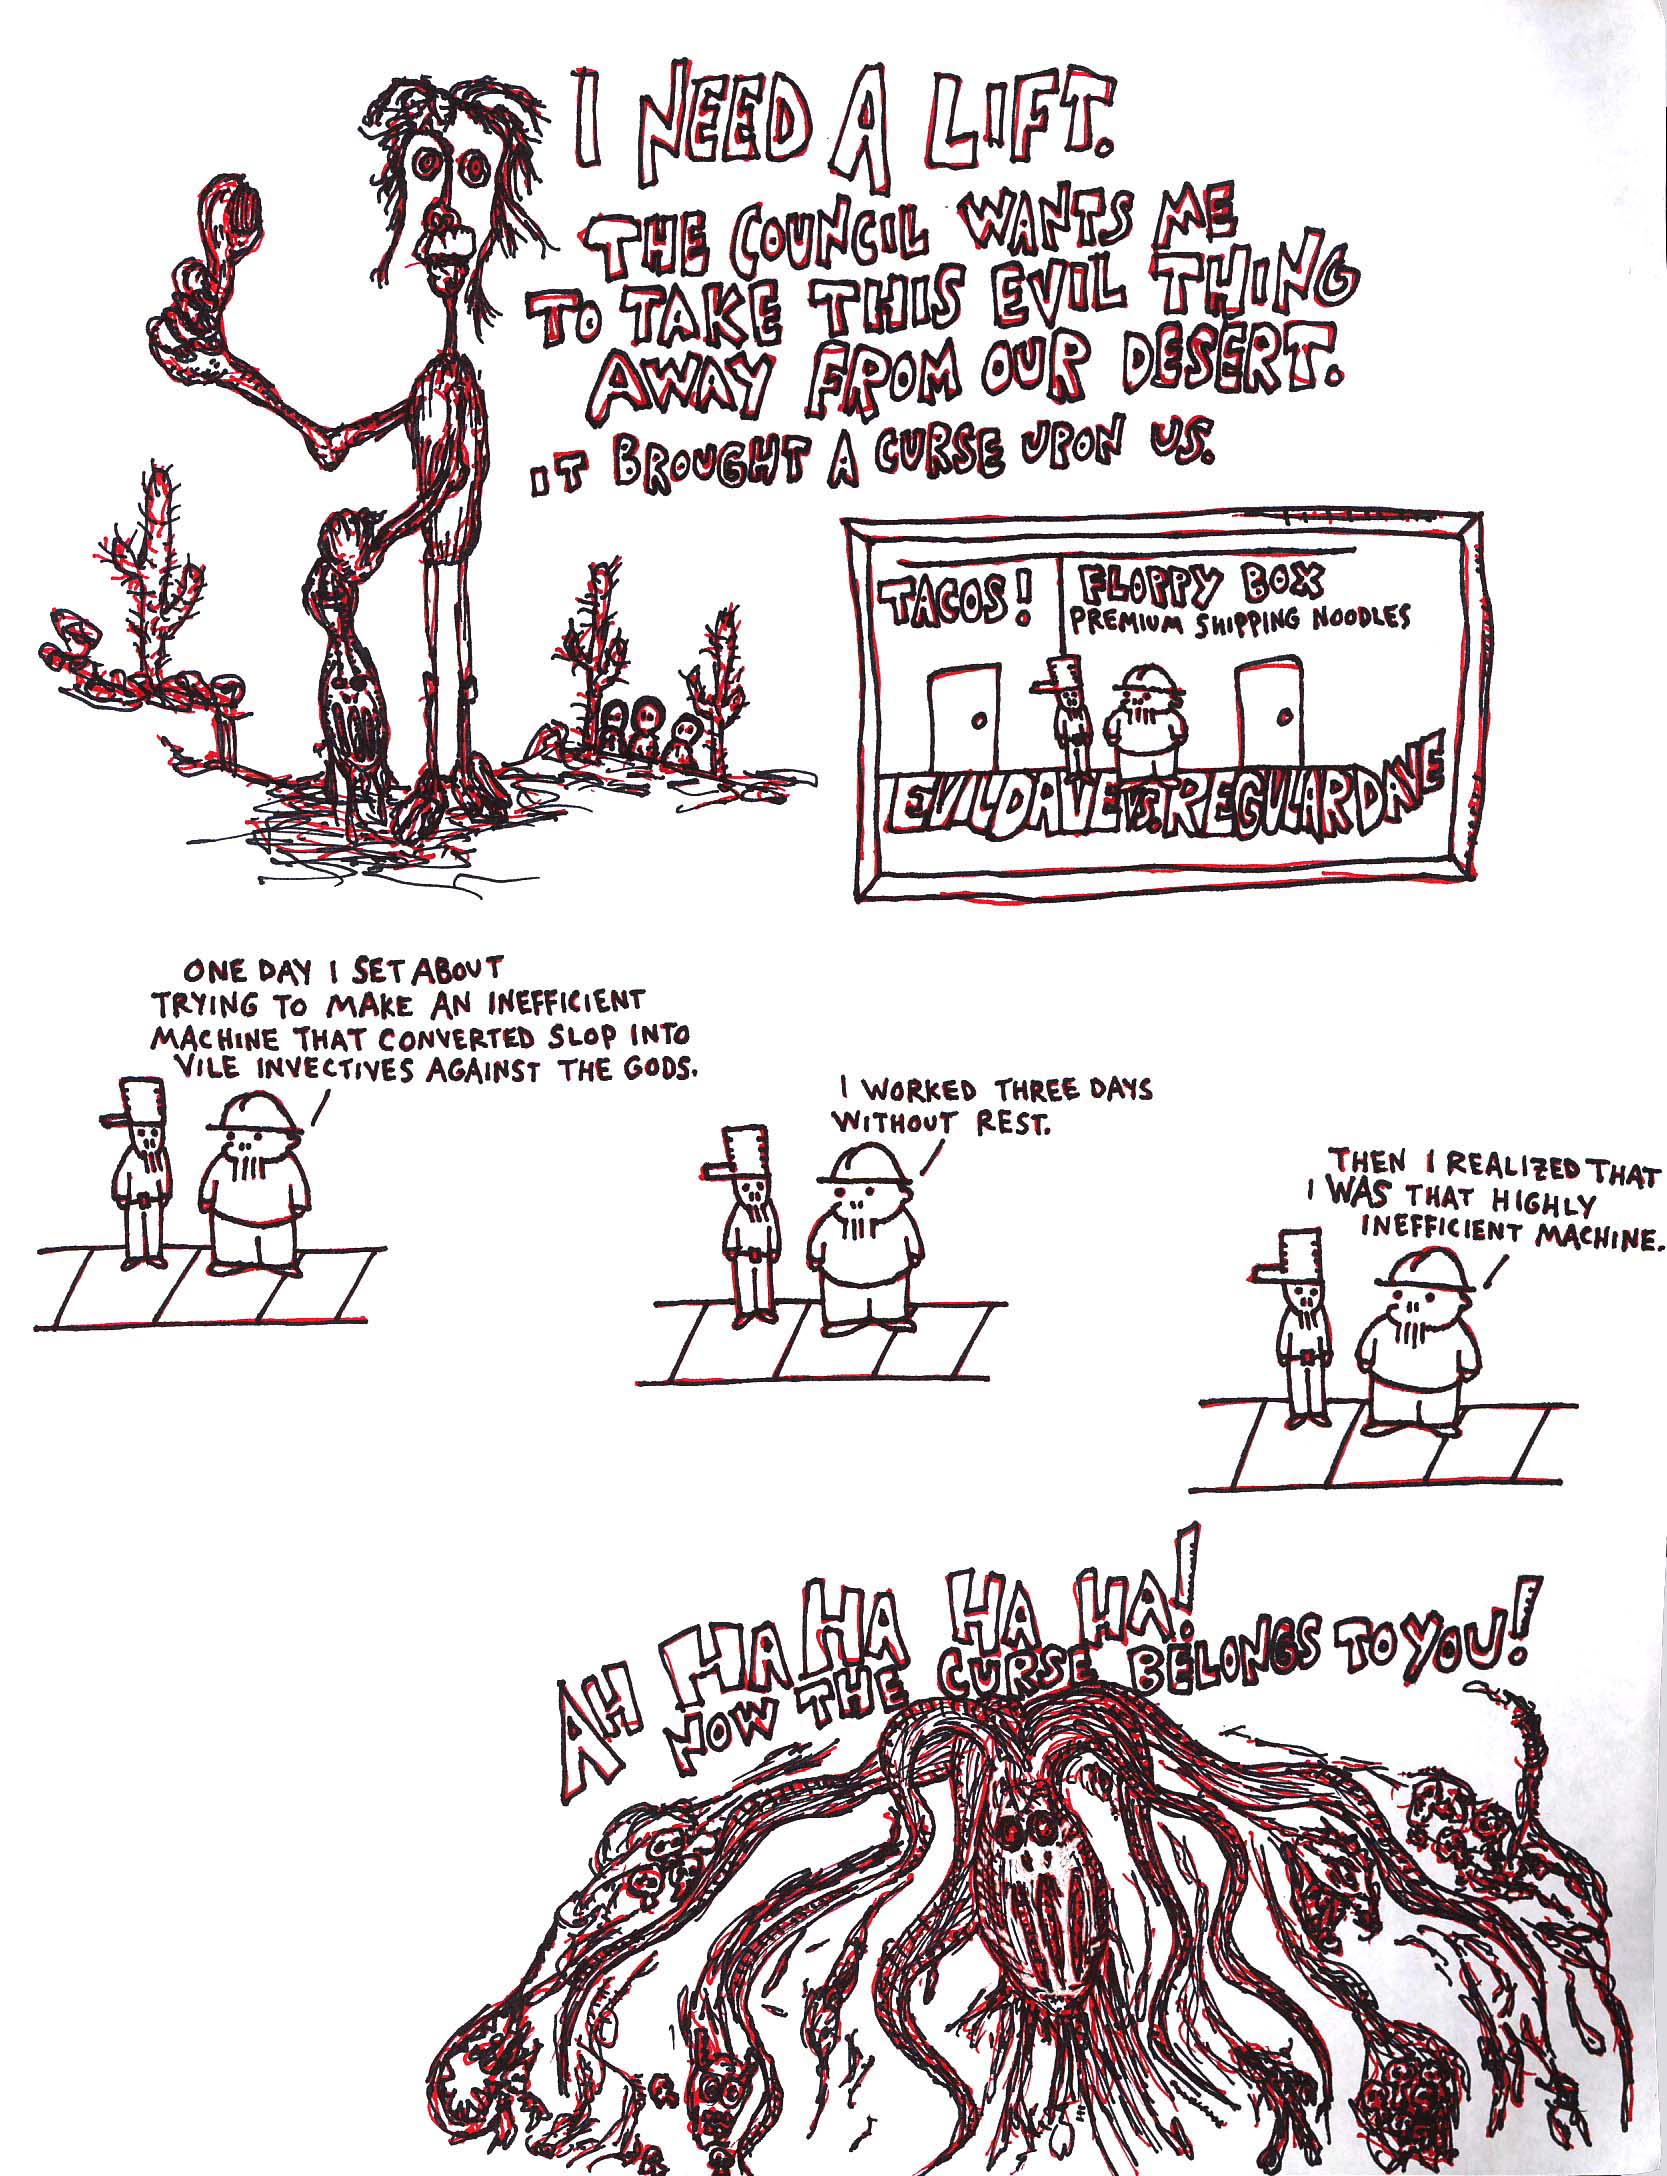 I NEED A LIFT.
THE COUNCIL WANTS ME
TO TAKE THIS EVIL THING
AWAY FROM OUR DESERT.
IT BROUGHT A CURSE UPON US.
TACOS!
FLOPPY BOX
PREMIUM SHIPPING NOODLES
EVIL DAVE VS. REGULAR DAVE
ONE DAY I SET ABOUT
TRYING TO MAKE AN INEFFICIENT
MACHINE THAT CONVERTED SLOP INTO
VILE INVECTIVES AGAINST THE GODS.
I WORKED THREE DAYS
WITHOUT REST.
THEN I REALIZED THAT
I WAS THAT HIGHLY
INEFFICIENT MACHINE.
AH HA HA HA HA!
NOW THE CURSE BELONGS TO YOU!